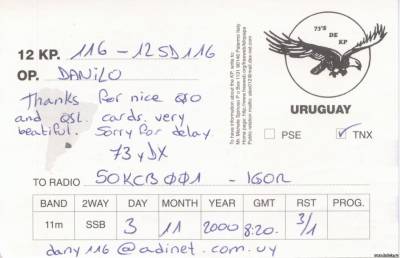 12 KP. 116 - 12SD116
OP. DANILO
Thanks for nice QSO
and QSL cards. very
beatiful. Sorry for delay
73 y DX
73'S
DE
KP
URUGUAY
PSE
TNX
TO RADIO 50KCB001 - IGOR
BAND 2WAY DAY MONTH YEAR GMT RST PROG.
11m SSB 3 11 2000 8:20. 3/1
dany116@adinet.com.uy